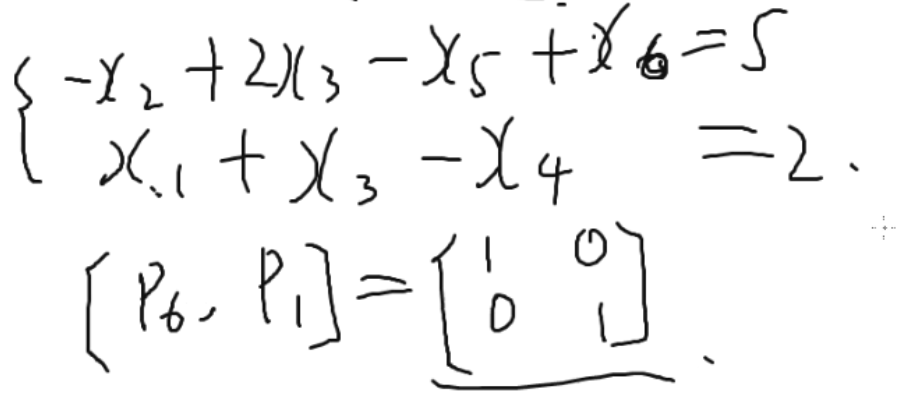 { -x₂ + 2x₃ - x₅ + x₆ = 5
x₁ + x₃ - x₄ = 2.
[P₆, P₁] = [1 0
0 1].